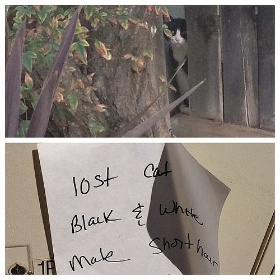 lost Cat
Black & White
Male Shorthair